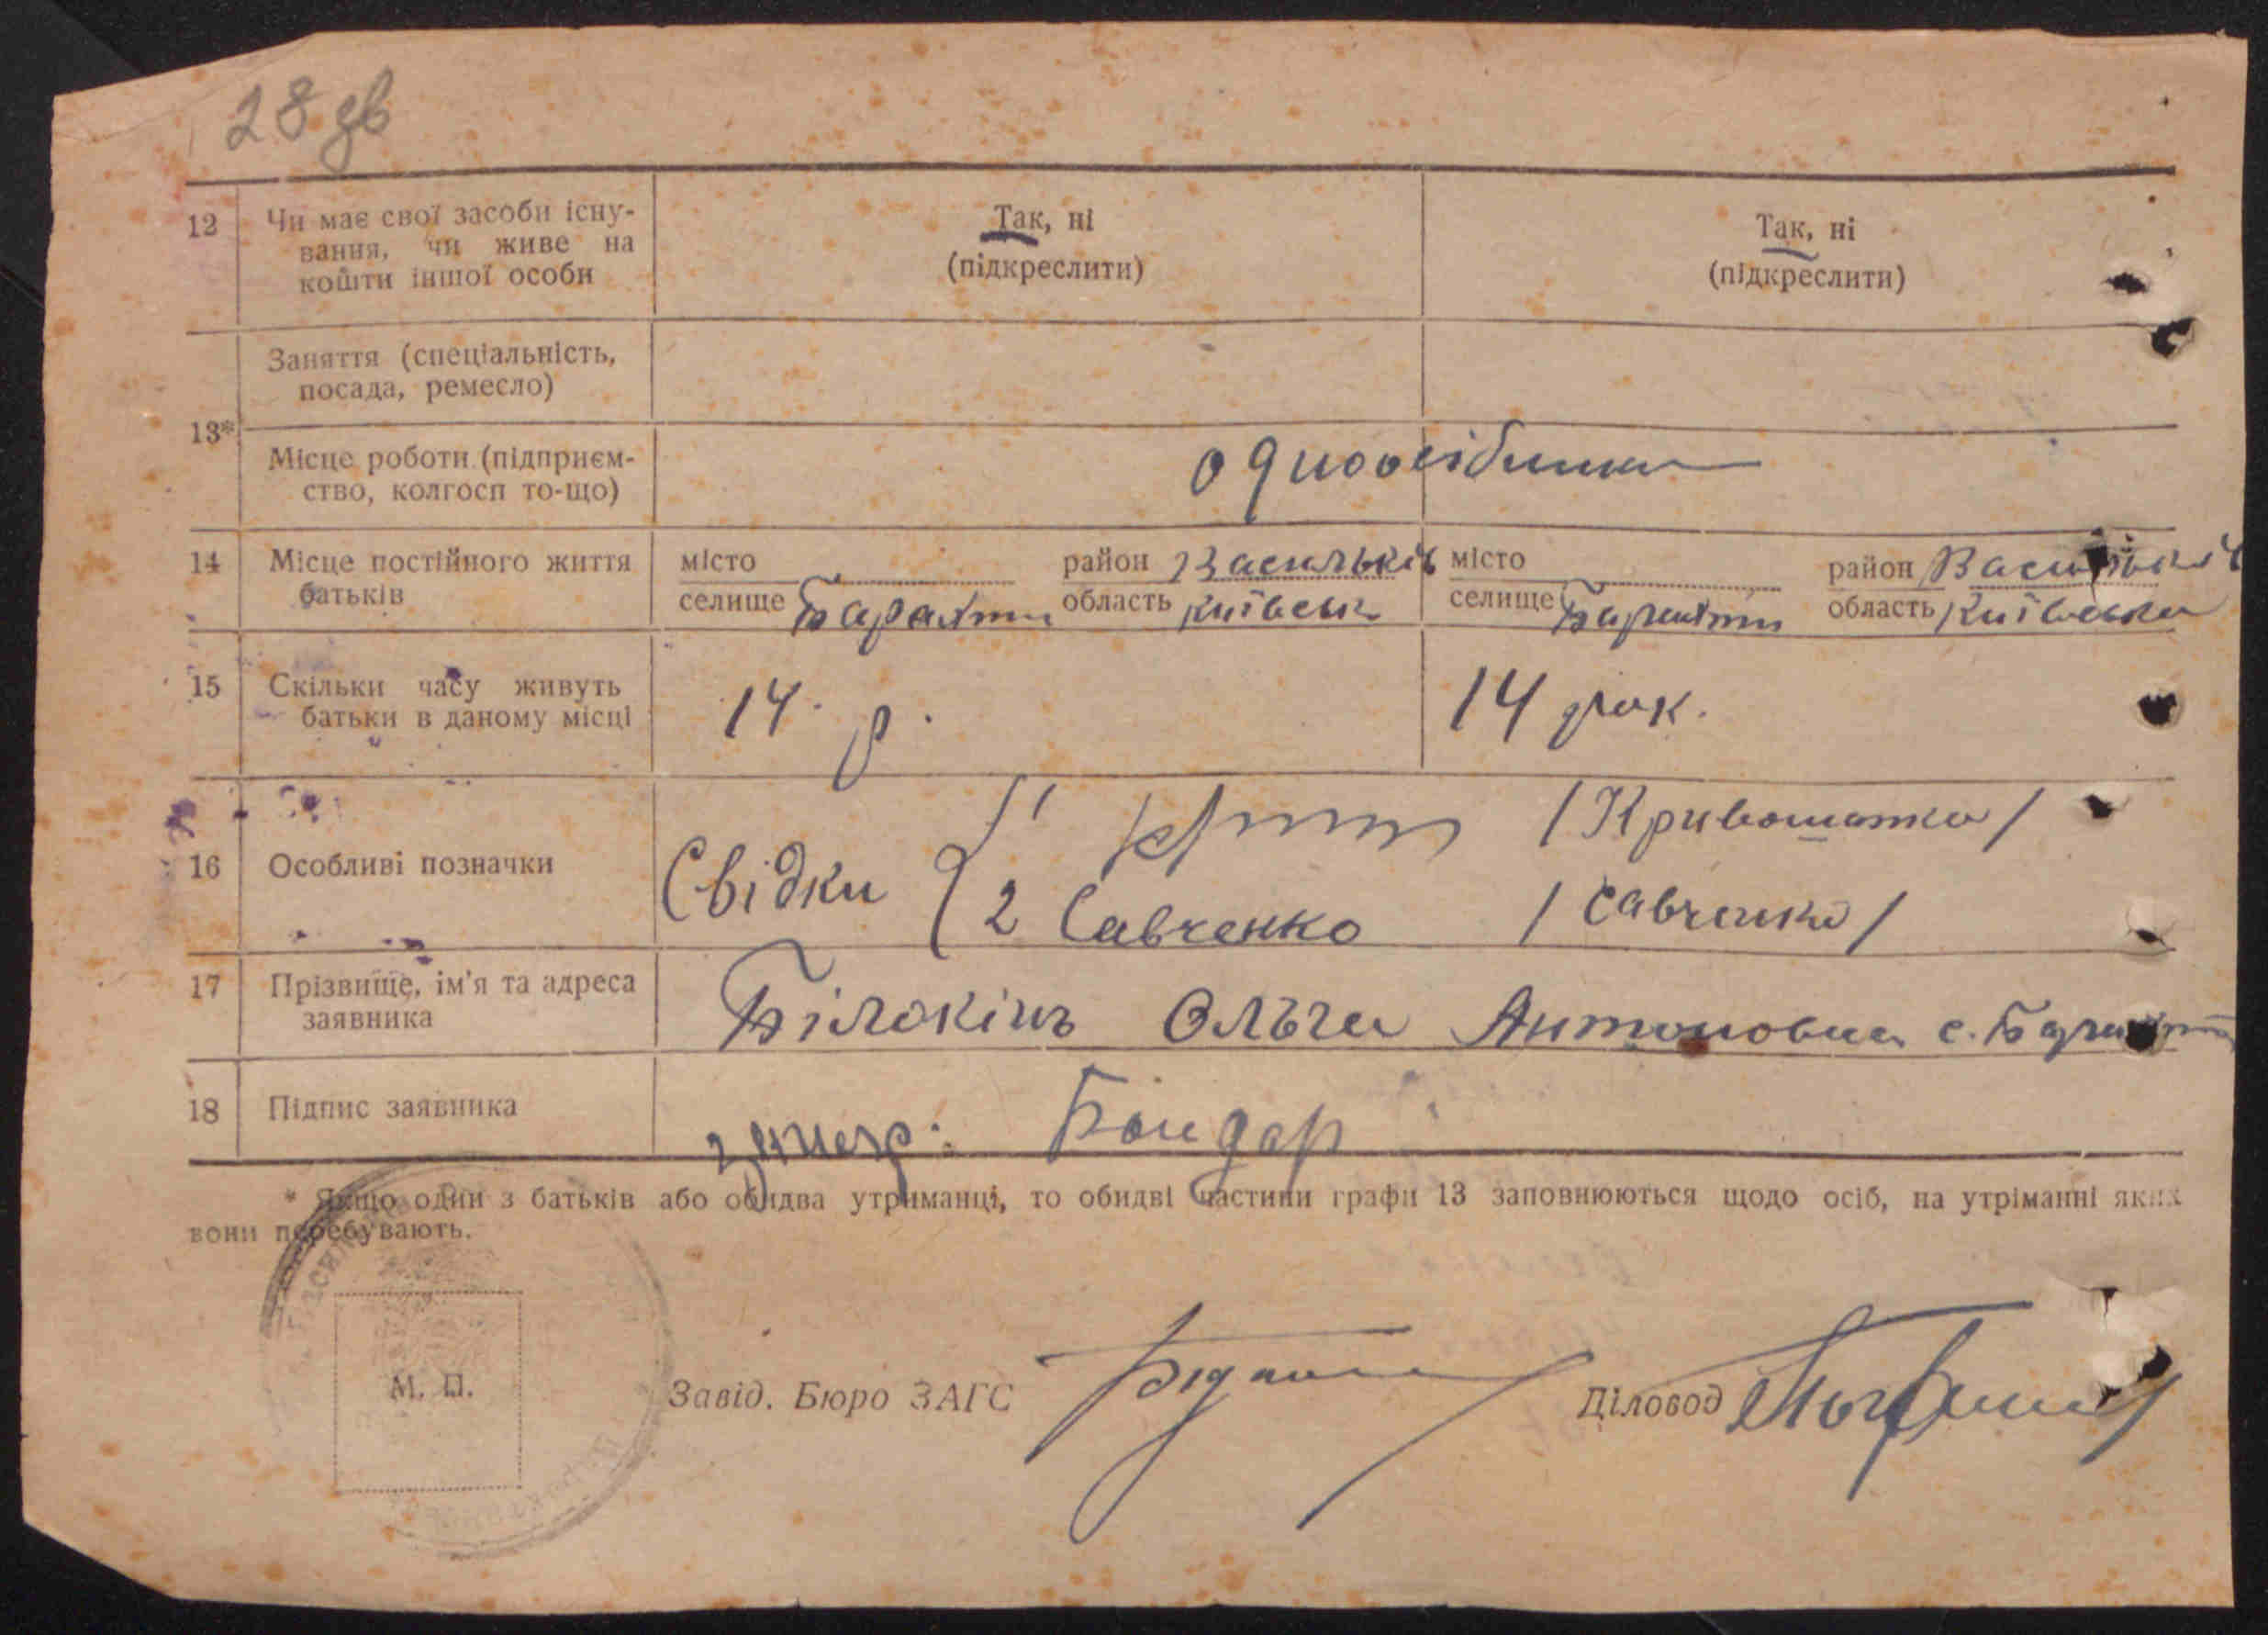 28 зв
12 Чи має свої засоби існу-
вання, чи живе на
кошти іншої особи
Так, ні
(підкреслити)
Так, ні
(підкреслити)
13*
Заняття (спеціальність,
посада, ремесло)
Місце роботи (підприєм-
ство, колгосп то-що)
одноосібники
14 Місце постійного життя
батьків
місто район Васильків
селище Барахти область Київськ
місто район Васильків
селище Барахти область Київська
15 Скільки часу живуть
батьки в даному місці
14 р.
14 рок.
16 Особливі позначки
Свідки
1 /Кривошатко/
2 Савченко /Савченко/
17 Прізвище, ім'я та адреса
заявника
Білокінь Ольга Антоновна с. Барахти
18 Підпис заявника
Бондар
* Якщо один з батьків або обидва утриманці, то обидві частини графи 13 заповнюються щодо осіб, на утріманні яких
вони перебувають.
М. П.
Завід. Бюро ЗАГС
Діловод